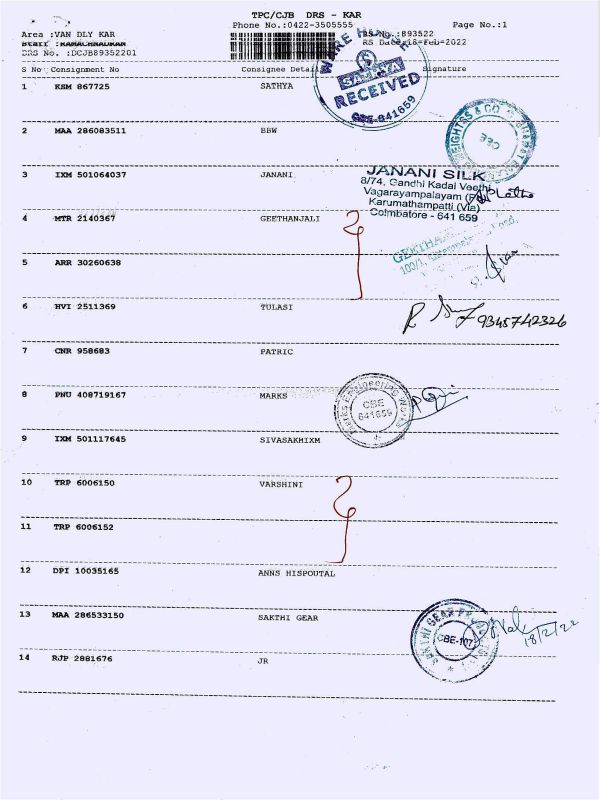 TPC/CJB DRS - KAR
Phone No.:0422-3505555 Page No.:1
Area :VAN DLY KAR RS No.:893522
Staff :RAMACHANDRAN RS Date:18-Feb-2022
DRS No. :DCJB89352201
S No Consignment No Consignee Detail Signature
1 KSM 867725 SATHYA
WARE HOUSE
SATHYA
RECEIVED
CBE-641659
2 MAA 286083511 BBW
WEIGHTSS & CO BHARAT
CBE
3 IXM 501064037 JANANI
JANANI SILK
8/74, Gandhi Kadai Veethi
Vagarayampalayam
Karumathampatti (Via)
Coimbatore - 641 659
4 MTR 2140367 GEETHANJALI
5 ARR 30260638
6 HVI 2511369 TULASI
9345742326
7 CNR 958683 PATRIC
8 PNU 408719167 MARKS
Engineering Works
CBE
641659
9 IXM 501117645 SIVASAKHIXM
10 TRP 6006150 VARSHINI
11 TRP 6006152
12 DPI 10035165 ANNS HISPOUTAL
13 MAA 286533150 SAKTHI GEAR
SAKTHI GEAR
CBE-107
18/2/22
14 RJP 2881676 JR